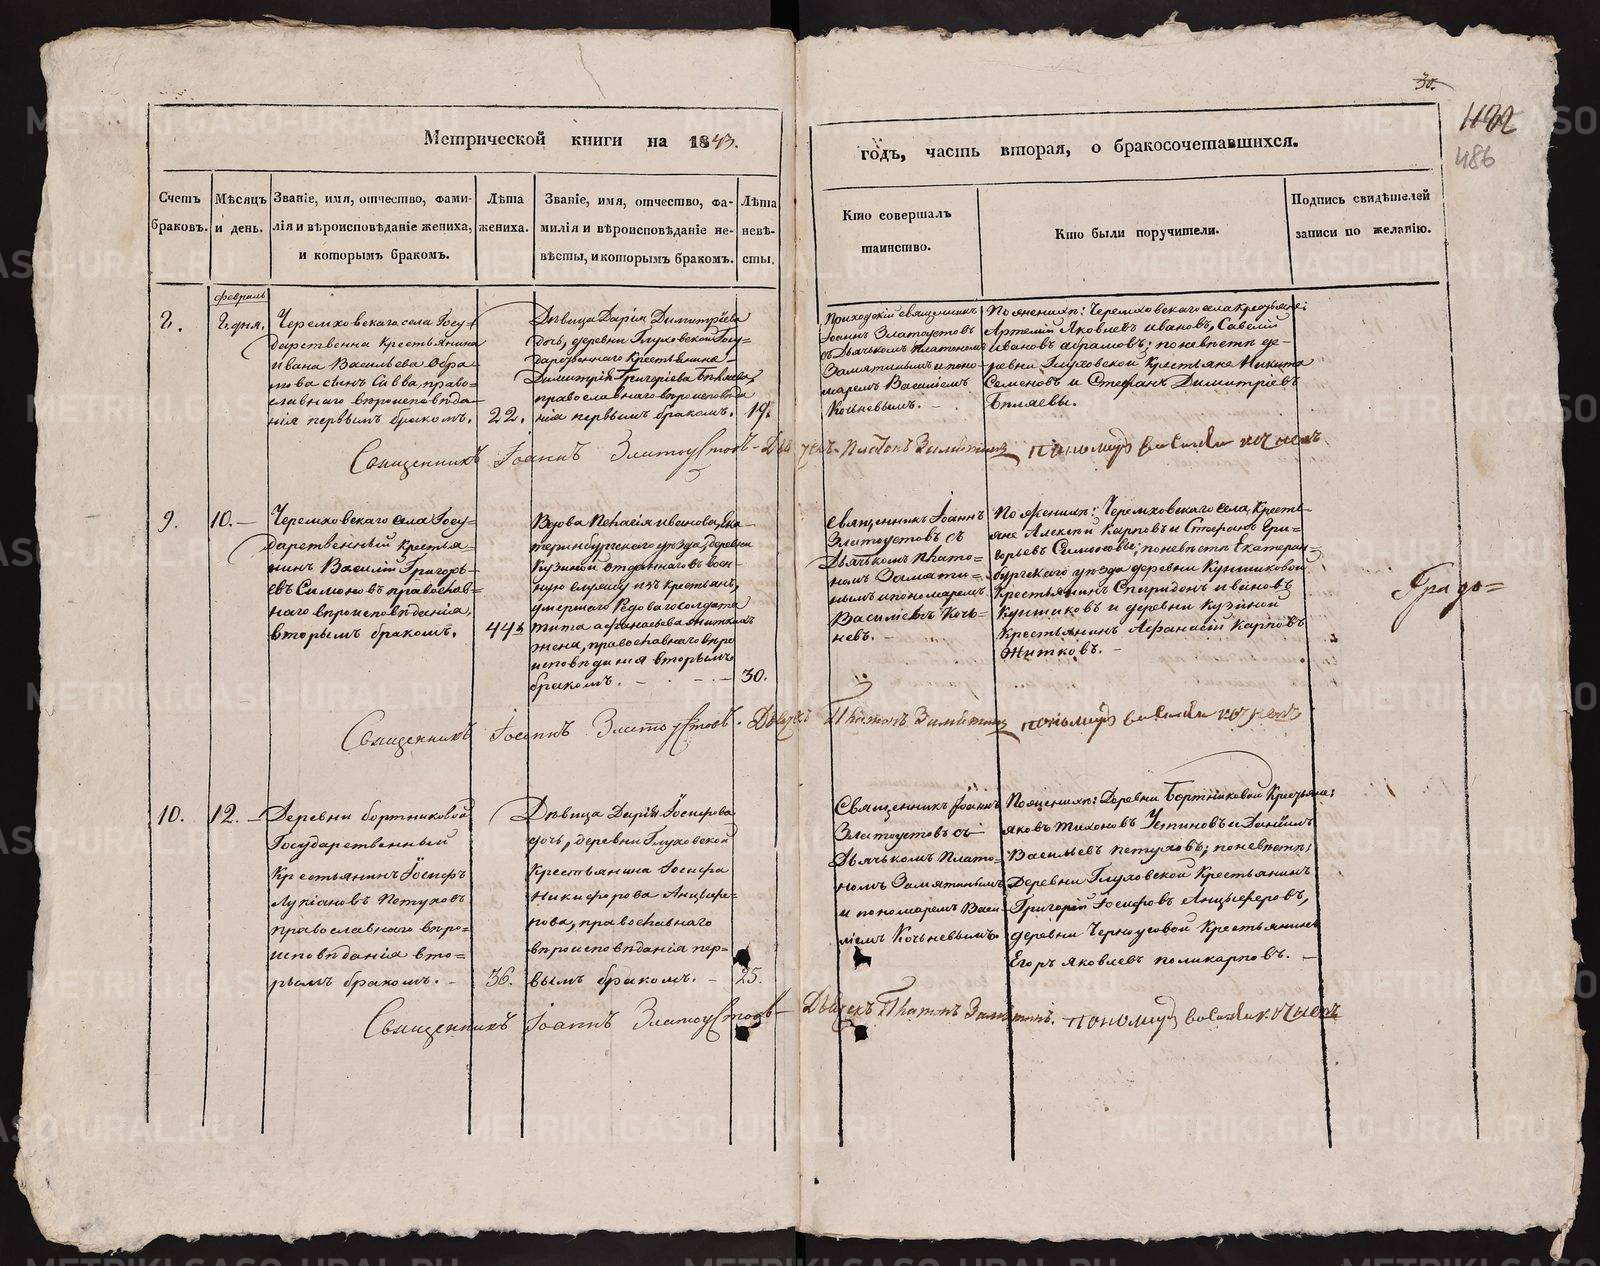 30.
482
486
Метрической книги на 1843.
годъ, часть вторая, о бракосочетавшихся.
Счетъ браковъ.
Мѣсяцъ и день.
Званіе, имя, отчество, фами-
лія и вѣроисповѣданіе жениха,
и которымъ бракомъ.
Лѣта жениха.
Званіе, имя, отчество, фа-
милія и вѣроисповѣданіе не-
вѣсты, и которымъ бракомъ.
Лѣта невѣ-
сты.
Кто совершалъ
таинство.
Кто были поручители.
Подпись свидѣтелей
записи по желанію.
февраль
8.
8 дня.
Черемховскаго села Госу-
дарственна крестьянина
Ивана Васильева Абра-
мова сынъ Савва, право-
славнаго вѣроисповѣда-
нія первымъ бракомъ.
22.
Дѣвица Дарія Димитріева
дочь, деревни Глуховской Госу-
дарственнаго крестьянина
Димитрія Григоріева Бѣляева,
православнаго вѣроисповѣда
нія первымъ бракомъ.
19.
Приходскій священникъ
Іоаннъ Златоустовъ
съ Дьячькомъ Платономъ
Замятинымъ и поно-
маремъ Василіемъ
Кочневымъ.
По женихѣ: Черемховскаго села крестьяне:
Артемій Яковлевъ Ивановъ, Савелій
Ивановъ Абрамовъ; по невѣстѣ де-
ревни Глуховской Крестьяне Никита
Семеновъ и Стефанъ Димитріевъ
Бѣляевы.
Священникъ Іоаннъ Златоустовъ – Дьячекъ Платонъ Замятинъ пономарь Василій Кочневъ
9.
10.
Черемховскаго села Госу-
дарственный крестья-
нинъ Василій Григорь-
евъ Симоновъ православ-
наго вѣроисповѣданія,
вторымъ бракомъ.
44
Вдова Пелагія Иванова, Ека-
теринбургскаго уѣзда, деревни
Кузиной отданнаго въ воен-
ную службу изъ крестьянъ,
умершаго Рядоваго солдата
Тита Афанасьева Житкова
жена, православнаго вѣро
исповѣданія вторымъ
бракомъ.
30.
Священникъ Іоаннъ
Златоустовъ съ
Дьячькомъ Плато-
номъ Замяти-
нымъ и пономаремъ
Василіемъ Коч-
невъ.
По женихѣ: Черемховскаго села, Кресть-
яне Алексѣй Карповъ и Стефанъ Гри-
горьевъ Симоновы; по невѣстѣ Екатерин-
бургскаго уѣзда деревни Кунииковой
Крестьянинъ Спиридонъ Ивановъ
Кунииковъ и деревни Кузиной
Крестьянинъ Афанасій Карповъ
Житковъ.
Священникъ Іоаннъ Златоустовъ. Дьячекъ Платонъ Замятинъ пономарь Василій Кочневъ
10.
12.
Деревни Бортниковой
Государственный
Крестьянинъ Іосифъ
Лукіановъ Петуховъ
православнаго вѣро-
исповѣданія вто-
рымъ бракомъ.
36.
Дѣвица Дарія Іосифова
дочь, деревни Глуховской
Крестьянина Іосифа
Никифорова Анцыфе-
рова, православнаго
вѣроисповѣданія пер-
вымъ бракомъ.
25.
Священникъ Іоаннъ
Златоустовъ съ
Дьячькомъ Плато-
номъ Замятинымъ
и пономаремъ Васи-
ліемъ Кочьневымъ
По женихѣ: Деревни Бортниковой Крестьяне:
Яковъ Тихоновъ Устиновъ и Даніилъ
Васильевъ Петуховъ; по невѣстѣ:
Деревни Глуховской Крестьянинъ
Григорій Іосифовъ Анцыферовъ,
деревни Черноусовой Крестьянинъ
Егоръ Яковлевъ Поликарповъ.
Священникъ Іоаннъ Златоустовъ – Дьячекъ Платонъ Замятинъ. пономарь Василій Кочневъ
METRIKI.GASO-URAL.RU